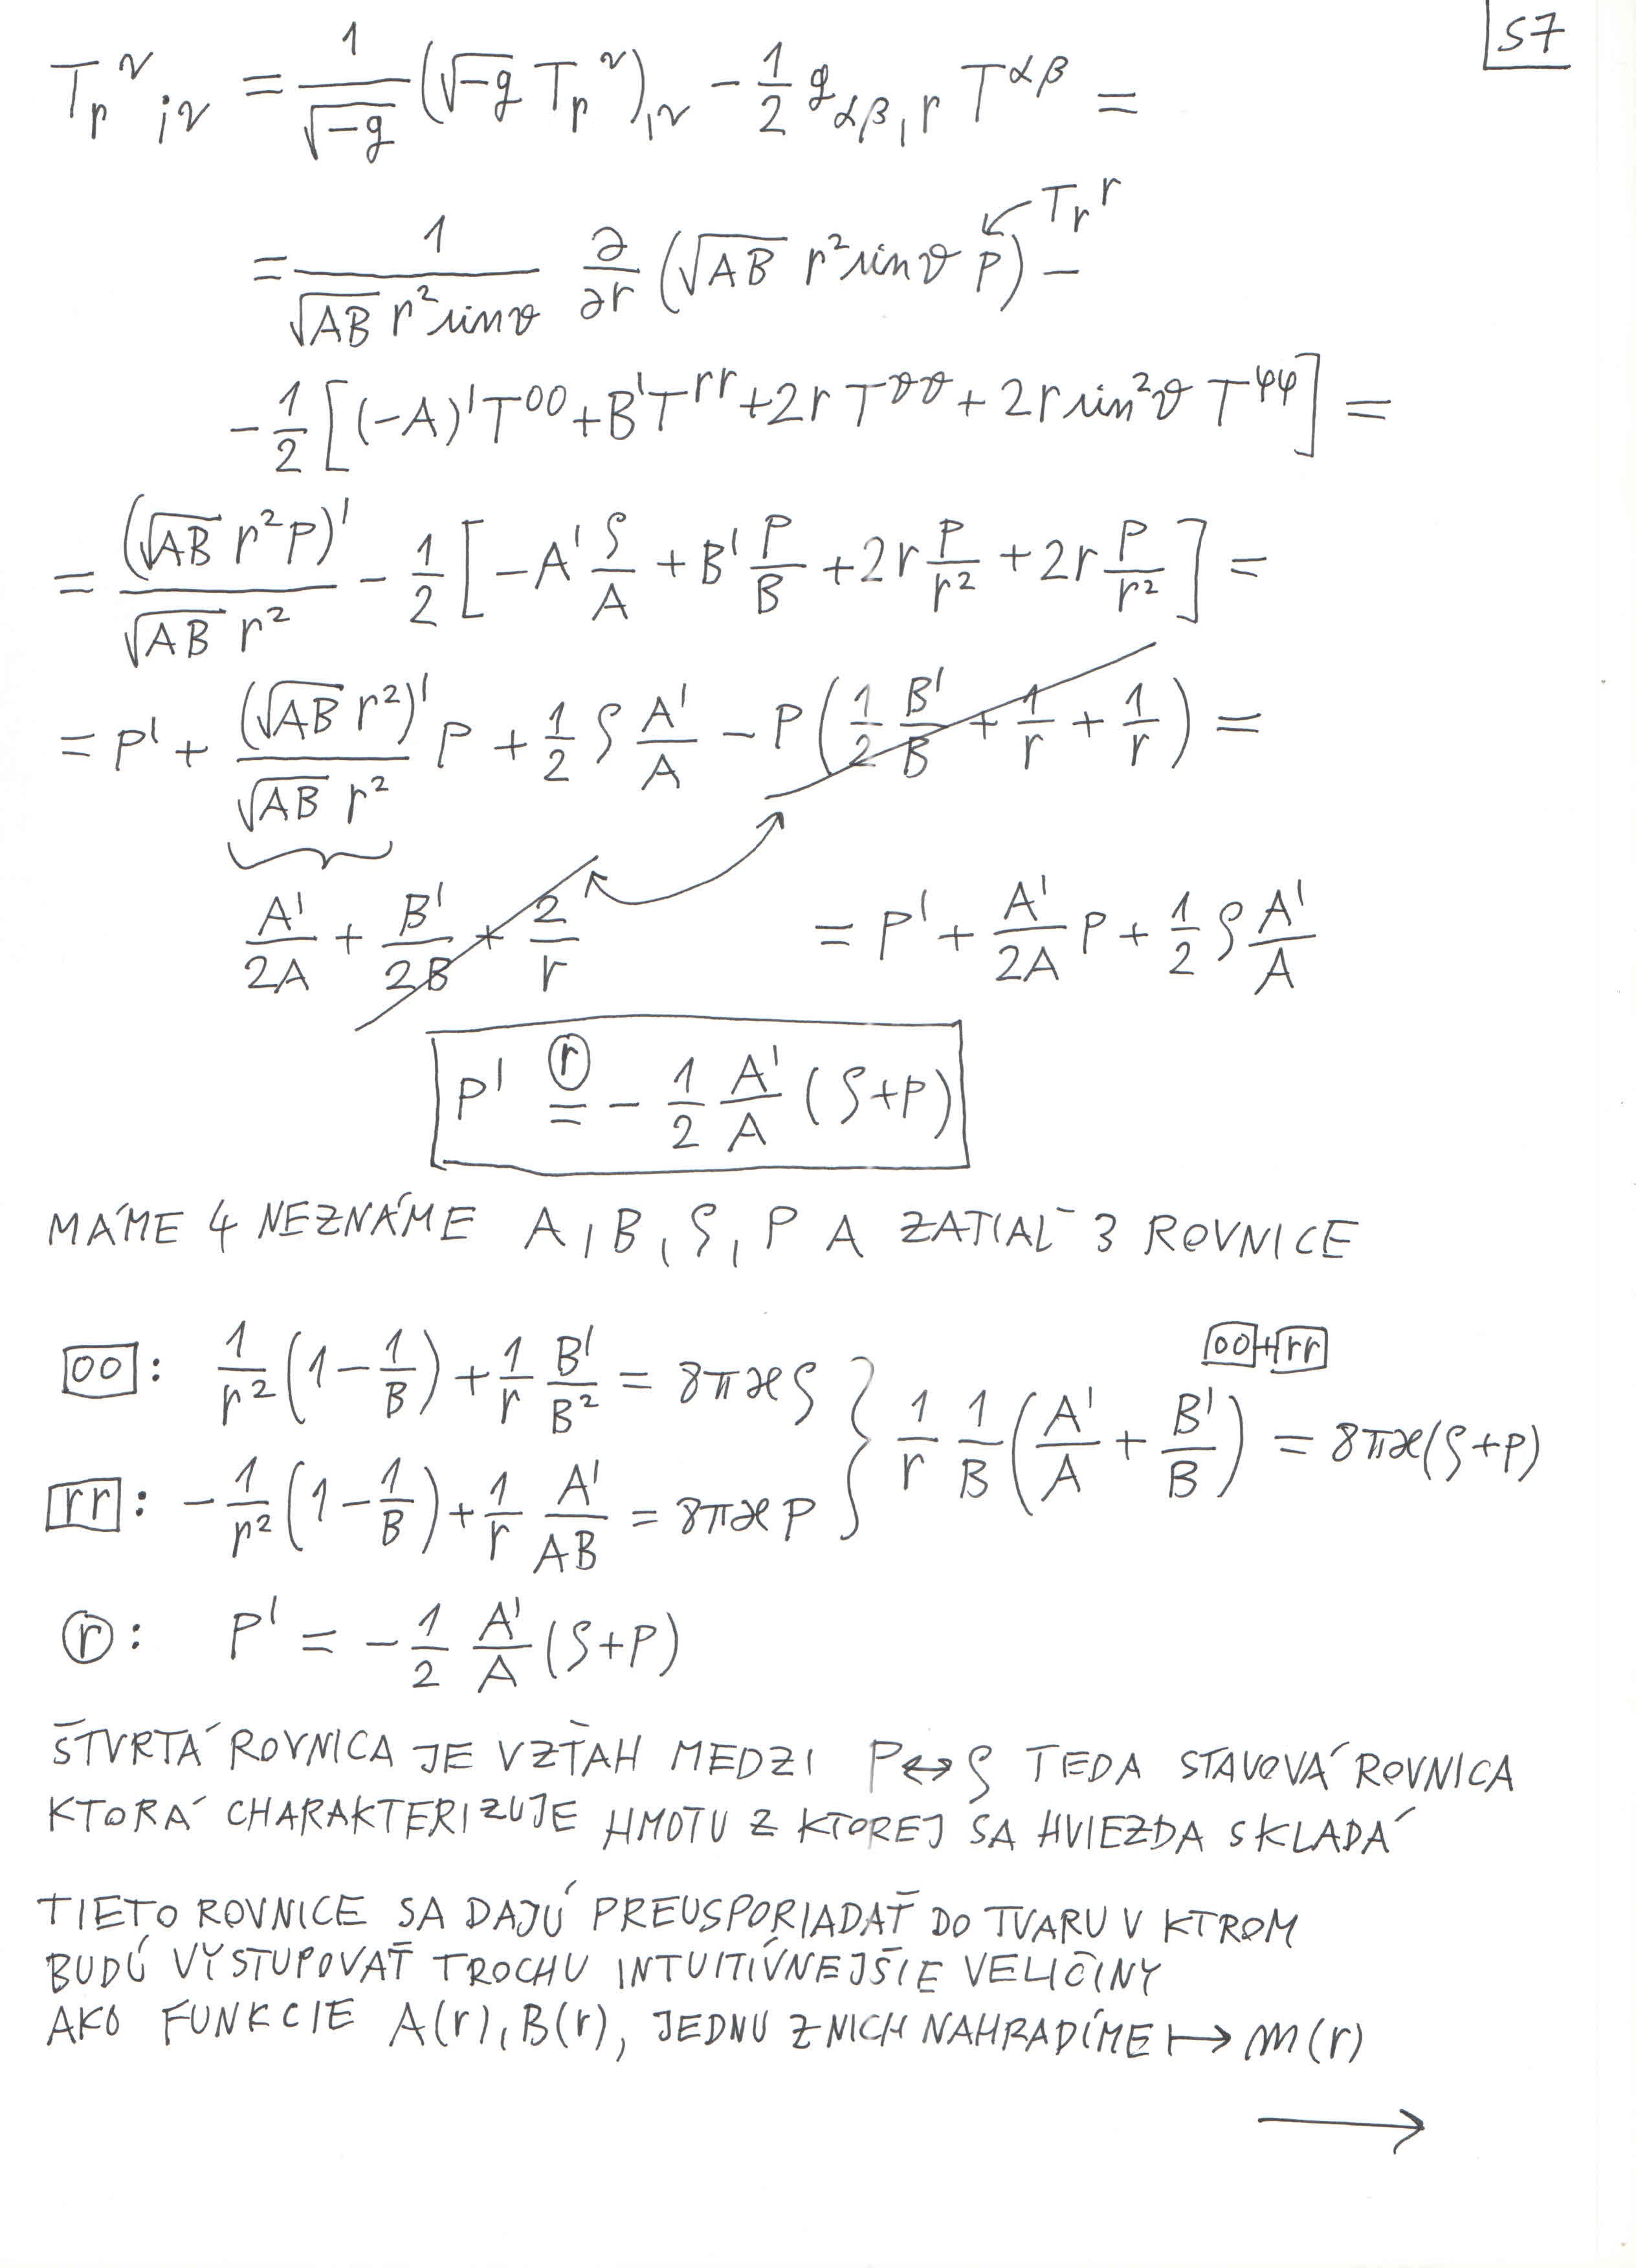 S7
T_r^ν_{;ν} = 1/√-g (√-g T_r^ν)_{,ν} - 1/2 g_{αβ,r} T^{αβ} =
T_r^r
= 1/(√AB r² sinϑ) ∂/∂r (√AB r² sinϑ p) -
- 1/2 [(-A)' T^{00} + B' T^{rr} + 2r T^{ϑϑ} + 2r sin²ϑ T^{φφ}] =
= (√AB r² p)' / (√AB r²) - 1/2 [-A' ρ/A + B' p/B + 2r p/r² + 2r p/r²] =
= p' + (√AB r²)' / (√AB r²) p + 1/2 ρ A'/A - p (1/2 B'/B + 1/r + 1/r) =
A'/2A + B'/2B + 2/r = p' + A'/2A p + 1/2 ρ A'/A
p' (r)= - 1/2 A'/A (ρ+p)
MÁME 4 NEZNÁME A, B, ρ, p A ZATIAĽ 3 ROVNICE
00+rr
00: 1/r² (1 - 1/B) + 1/r B'/B² = 8πϰρ } 1/r 1/B (A'/A + B'/B) = 8πϰ(ρ+p)
rr: -1/r² (1 - 1/B) + 1/r A'/AB = 8πϰp
r: p' = - 1/2 A'/A (ρ+p)
ŠTVRTÁ ROVNICA JE VZŤAH MEDZI p↔ρ TEDA STAVOVÁ ROVNICA
KTORÁ CHARAKTERIZUJE HMOTU Z KTOREJ SA HVIEZDA SKLADÁ
TIETO ROVNICE SA DAJÚ PREUSPORIADAŤ DO TVARU V KTROM
BUDÚ VYSTUPOVAŤ TROCHU INTUITÍVNEJŠIE VELIČINY
AKO FUNKCIE A(r), B(r), JEDNU Z NICH NAHRADÍME ↦ m(r)
→